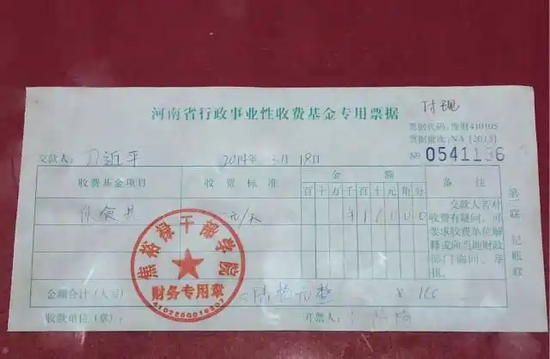 付现
河南省行政事业性收费基金专用票据
票据代码：豫财410105
票据批次：NA[2013]
№ 0541136
交款人：习近平 2014年3月18日
收费基金项目 收费标准 金额 备注
百十万千百十元角分
伙食费 元/天 ¥16000
交款人若对收费有疑问，可要求收费单位解释或向当地财政部门询问、举报。
第二联 记账联
焦裕禄干部学院
财务专用章
4102250010307
金额合计(大写) 陆拾元整 ¥ 160
收款单位(章)： 开票人：